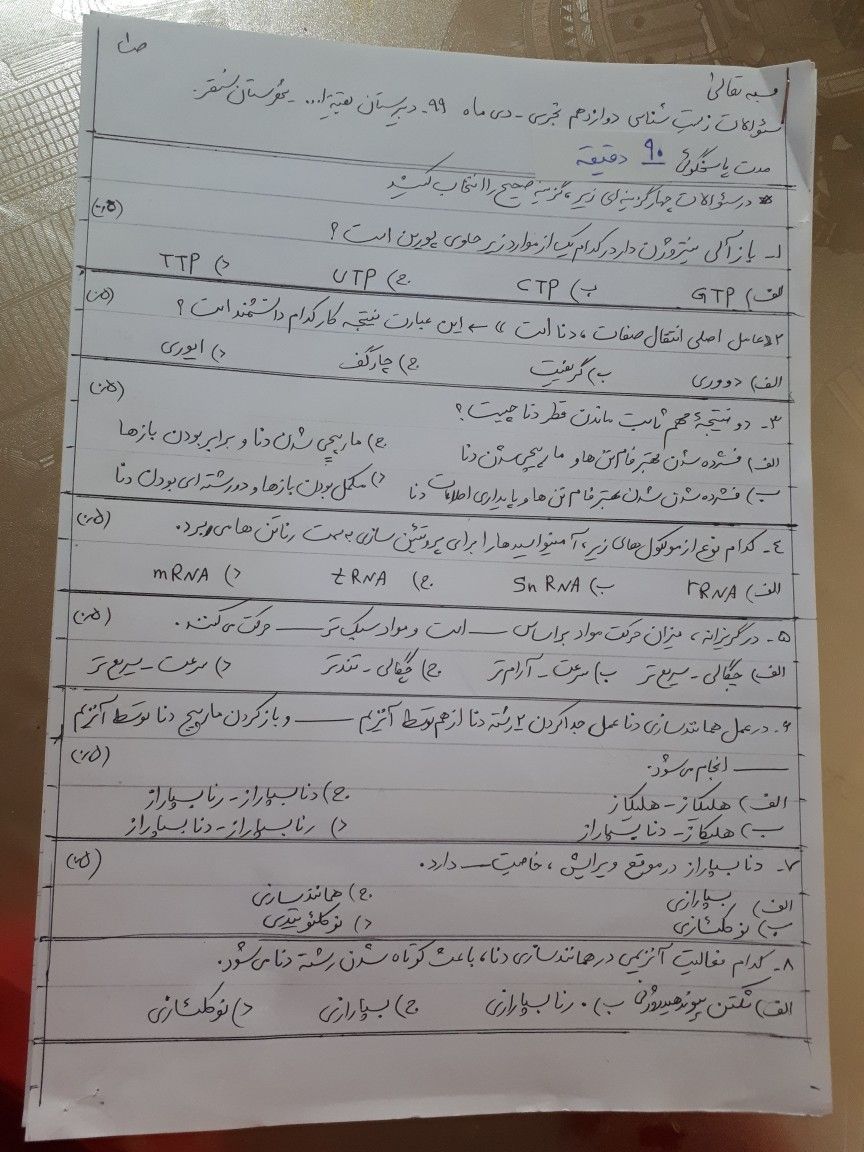 ص۱
بسمه تعالی
سؤالات زیست شناسی دوازدهم تجربی - دی ماه ۹۹ - دبیرستان بقیة ا... - شهرستان سنقر
مدت پاسخگوئی ۹۰ دقیقه
* در سؤالات چهارگزینه‌ای زیر، گزینه صحیح را انتخاب کنید
۱- باز آلی نیتروژن دار در کدام یک از موارد زیر حاوی پورین است؟ (۰/۵)
الف) GTP ب) CTP ج) UTP د) TTP
۲- «عامل اصلی انتقال صفات، دنا است» ← این عبارت نتیجه کار کدام دانشمند است؟ (۰/۵)
الف) دووری ب) گریفیت ج) چارگف د) ایوری
۳- دو نتیجهٔ مهم ثابت ماندن قطر دنا چیست؟ (۰/۵)
الف) فشرده شدن بهتر فام‌تن ها و مارپیچی شدن دنا ج) مارپیچی شدن دنا و برابر بودن بازها
ب) فشرده شدن شدن بهتر فام تن ها و پایداری اطلاعات دنا د) مکمل بودن بازها و دورشته ای بودن دنا
۴- کدام نوع از مولکول های زیر، آمینواسیدها را برای پروتئین سازی به سمت رناتن ها می برد. (۰/۵)
الف) rRNA ب) SnRNA ج) tRNA د) mRNA
۵- در گریزانه، میزان حرکت مواد براساس ــــ است و مواد سبک تر ــــ حرکت می کنند. (۰/۵)
الف) چگالی - سریع تر ب) سرعت - آرام تر ج) چگالی - تندتر د) سرعت - سریع تر
۶- در عمل همانندسازی دنا عمل جدا کردن ۲ رشته دنا از هم توسط آنزیم ــــ و باز کردن مارپیچ دنا توسط آنزیم
ــــ انجام می شود. (۰/۵)
الف) هلیکاز - هلیکاز ج) دنابسپاراز - رنابسپاراز
ب) هلیکاز - دنابسپاراز د) رنابسپاراز - دنابسپاراز
۷- دنابسپاراز در موقع ویرایش، خاصیت ــــ دارد. (۰/۵)
الف) بسپارازی ج) همانندسازی
ب) نوکلئازی د) نوکلئوتیدی
۸- کدام فعالیت آنزیمی در همانندسازی دنا، باعث کوتاه شدن رشته دنا می شود.
الف) شکستن پیوند هیدروژنی ب) رنابسپارازی ج) بسپارازی د) نوکلئازی